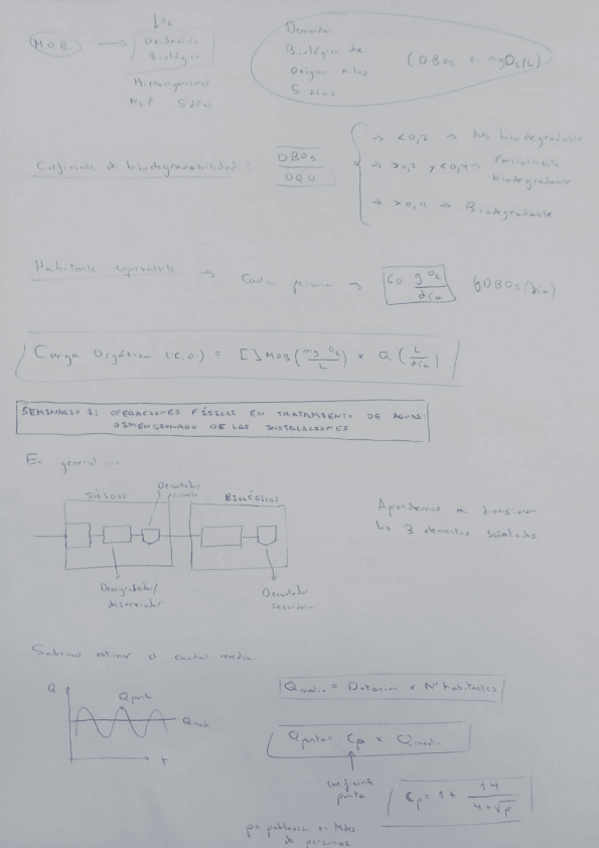 ↓O₂
M.O.B. → Oxidación
Biológica
Microorganismos
N, P 5 días
Demanda
Biológica de
Oxígeno a los
5 días
(DBO₅ en mgO₂/L)
Coeficiente de biodegradabilidad: DBO₅ / DQO
→ <0,2 → No biodegradable
→ >0,2 y <0,4 → Parcialmente
biodegradable
→ >0,4 → Biodegradable
Habitante equivalente → Cada persona → 60 g O₂ / día (DBO₅/día)
Carga Orgánica (C.O.) = [ ] MOB (mg O₂ / L) × Q (L / día)
SEMINARIO 2: OPERACIONES FÍSICAS EN TRATAMIENTO DE AGUAS:
DIMENSIONADO DE LAS INSTALACIONES
En general...
SÓLIDOS
Decantador
primario
BIOLÓGICOS
Desengrasador/
desarenador
Decantador
secundario
Aprendemos a
los 3 elementos señalados
Sabemos estimar el caudal medio
Q
Qpunta
Qmedio
t
Qmedio = Dotación × Nº habitantes
Qpunta = Cp × Qmedio
coeficiente
punta
Cp = 1 + 14 / 4+√p
p = población en miles
de personas